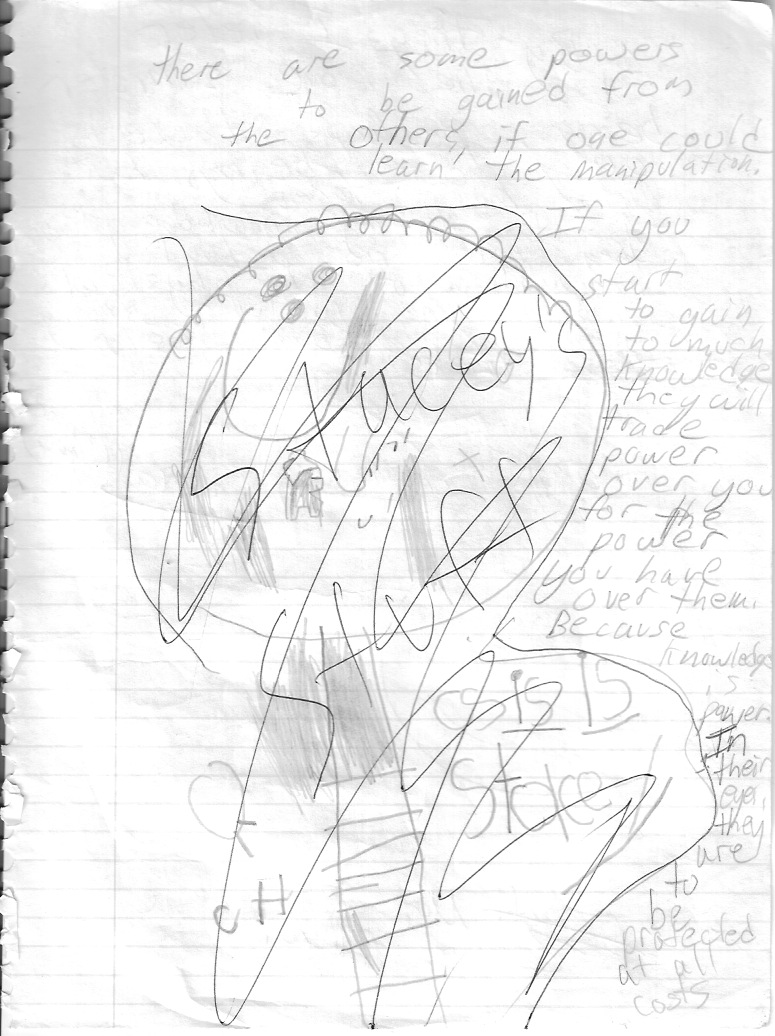 there are some powers
to be gained from
the others, if one could
learn the manipulation.
If you
start
to gain
to much
knowledge
they will
trade
power
over you
for the
power
you have
over them.
Because
knowledge
is
power.
In
their
eye,
they
are
to
be
protected
at all
costs
Stacey's